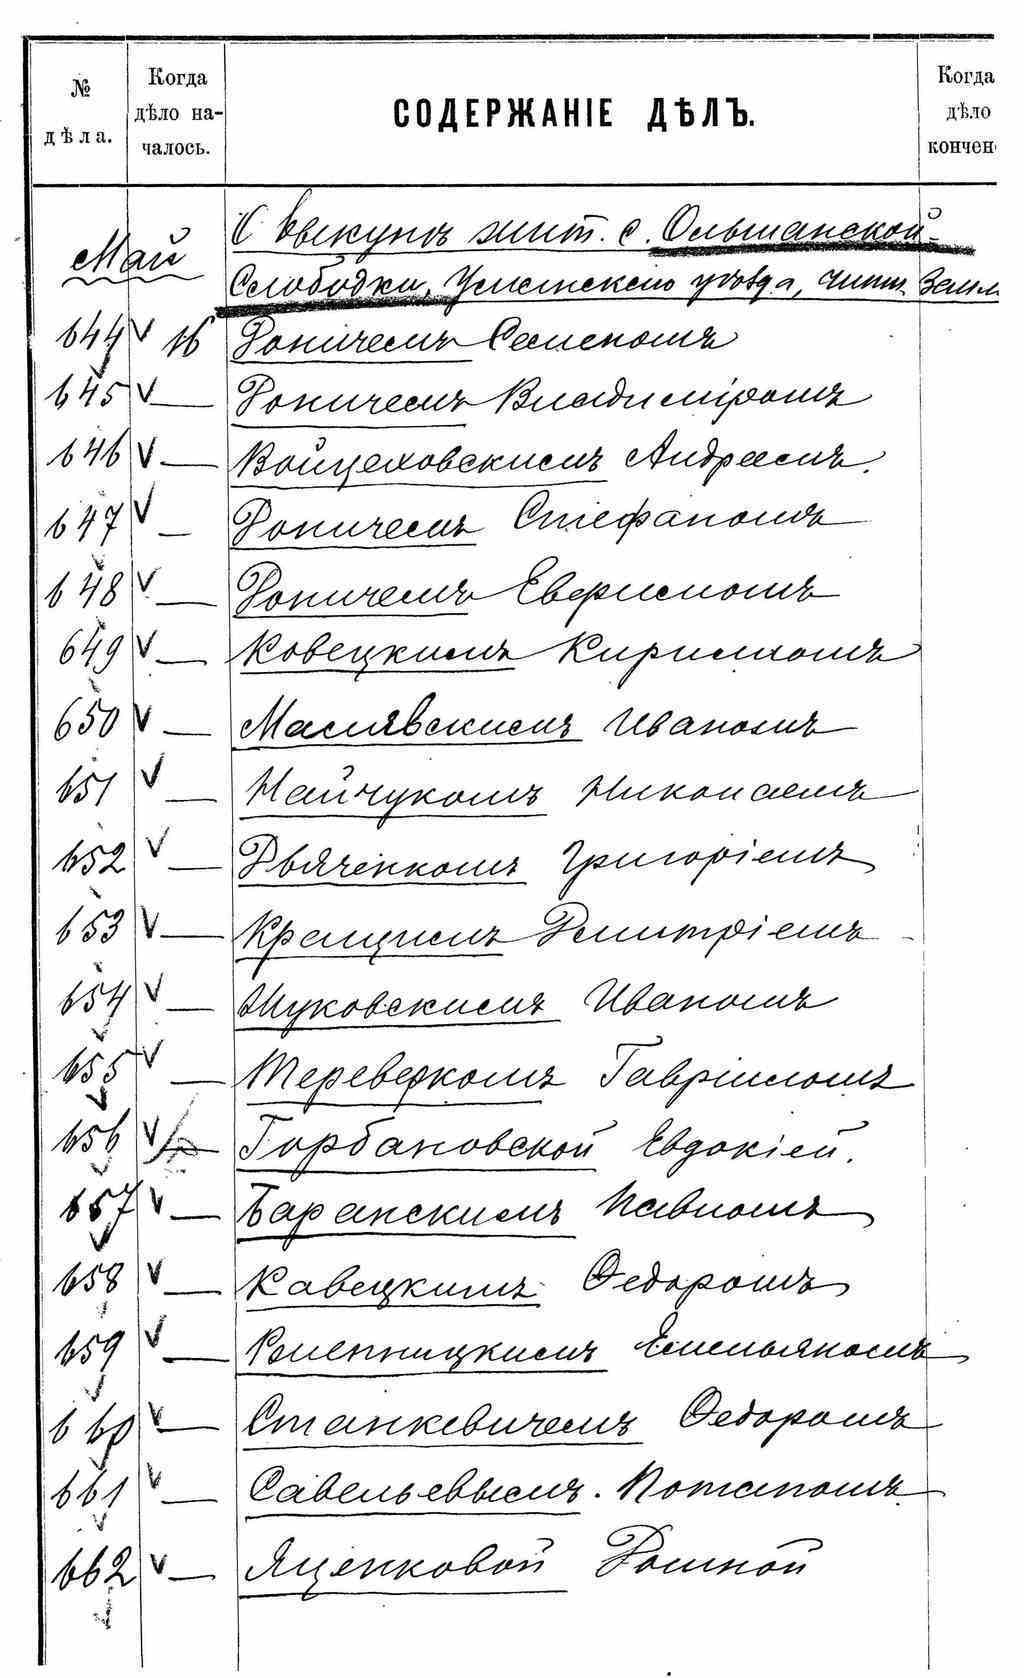 № дѣла.
Когда дѣло на-чалось.
СОДЕРЖАНІЕ ДѢЛЪ.
Когда дѣло кончен
Май
О выкупѣ жит. с. Ольшанской-
Слободки, Уманскаго уѣзда, чинш. земли
644 v 16 Доничемъ Семеномъ
645 v — Доничемъ Владиміромъ
646 v — Войцеховскимъ Андреемъ.
647 v — Доничемъ Стефаномъ
648 v — Доничемъ Евфимомъ
649 v — Ковецкимъ Кирилломъ
650 v — Маслявскимъ Иваномъ
651 v — Найчукомъ Николаемъ
652 v — Дьяченкомъ Григоріемъ
653 v — Дмитріемъ
654 v — Жуковскимъ Иваномъ
655 v — Тереверкомъ Гавріиломъ
656 v — Горбановской Евдокіей.
657 v — Баранскимъ Павломъ
658 v — Кавецкимъ Ѳедоромъ
659 v — Винницкимъ Емельяномъ
660 v — Станкевичемъ Ѳедоромъ
661 v — Савельевымъ. Потапомъ
662 v — Яценковой Домной